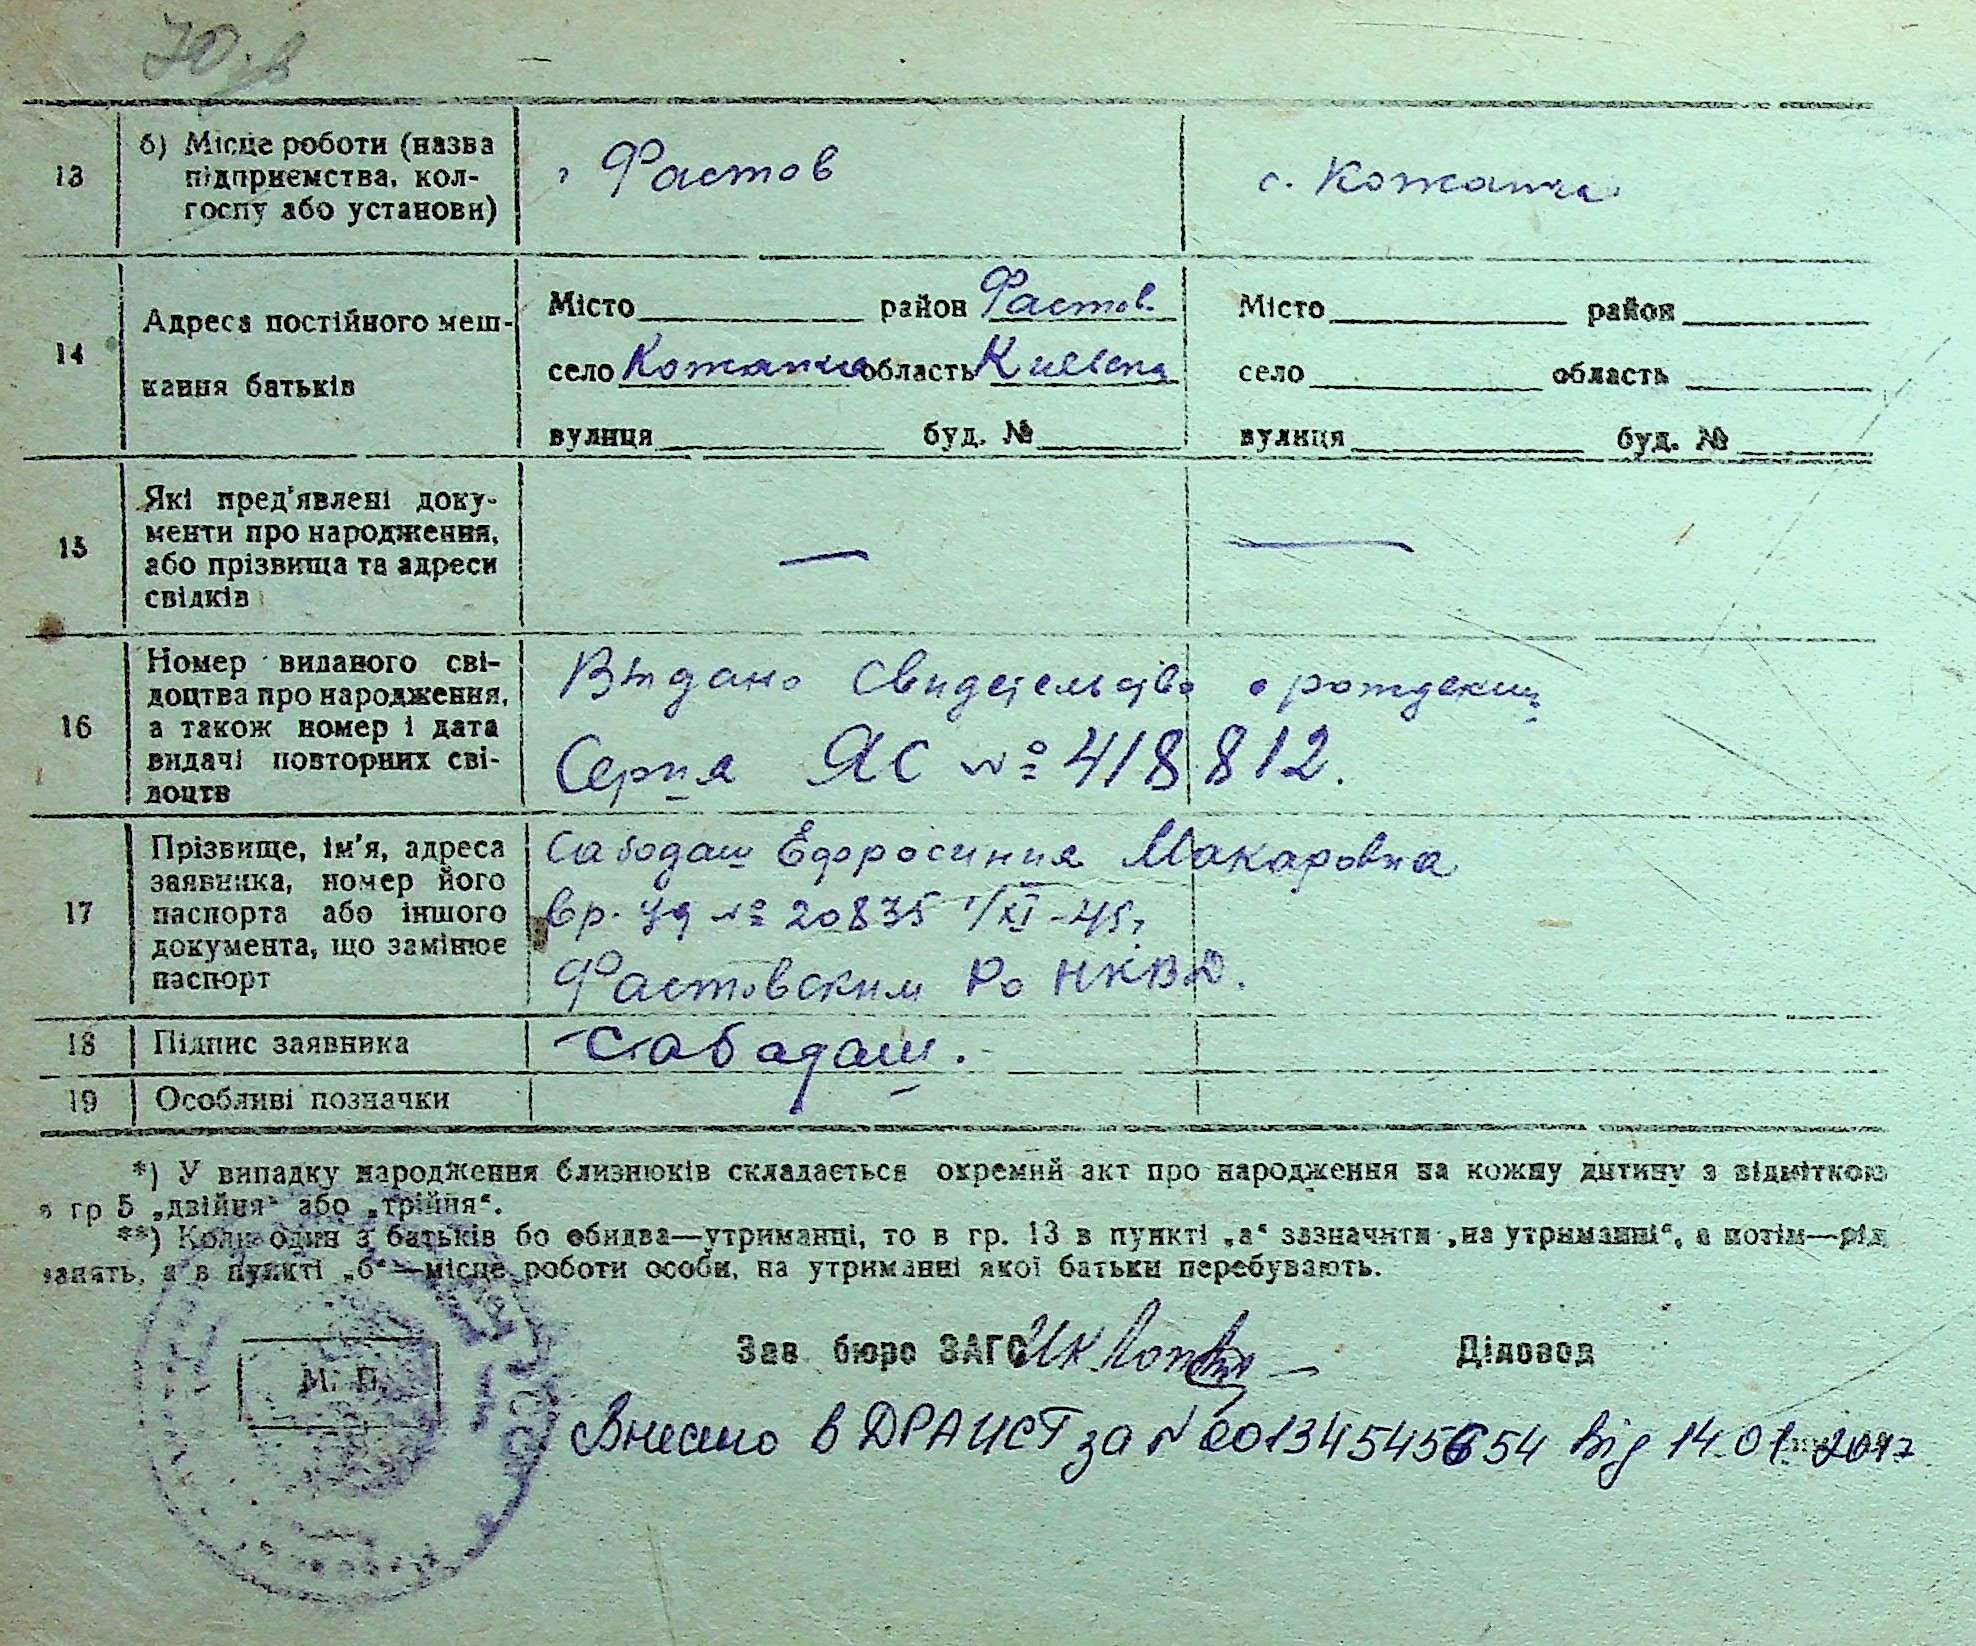 13
б) Місце роботи (назва
підприємства, кол-
госпу або установи)
г Фастов
с. Кожанка
14
Адреса постійного меш-
кання батьків
Місто район Фастов.
село Кожанка область Киевская
вулиця буд. №
Місто район
село область
вулиця буд. №
15
Які пред'явлені доку-
менти про народження,
або прізвища та адреси
свідків
—
—
16
Номер виданого сві-
доцтва про народження,
а також номер і дата
видачі повторних сві-
доцтв
Выдано свидетельство о рождении
Серия ЯС № 418812.
17
Прізвище, ім'я, адреса
заявника, номер його
паспорта або іншого
документа, що замінює
паспорт
Сабодаш Ефросиния Макаровна
вр. уд № 20835 1/XI-45г
Фастовским Ро НКВД.
18
Підпис заявника
Сабадаш.
19
Особливі позначки
*) У випадку народження близнюків складається окремий акт про народження на кожну дитину з відміткою
в гр 5 „двійня“ або „трійня“.
**) Коли один з батьків бо обидва—утриманці, то в гр. 13 в пункті „а“ зазначити „на утриманні“, а потім—рід
занять, а в пункті „б“—місце роботи особи, на утриманні якої батьки перебувають.
Зав бюро ЗАГС
Діловод
М. П.
Внесено в ДРАЦСГ за № 00134545654 від 14.01.2017